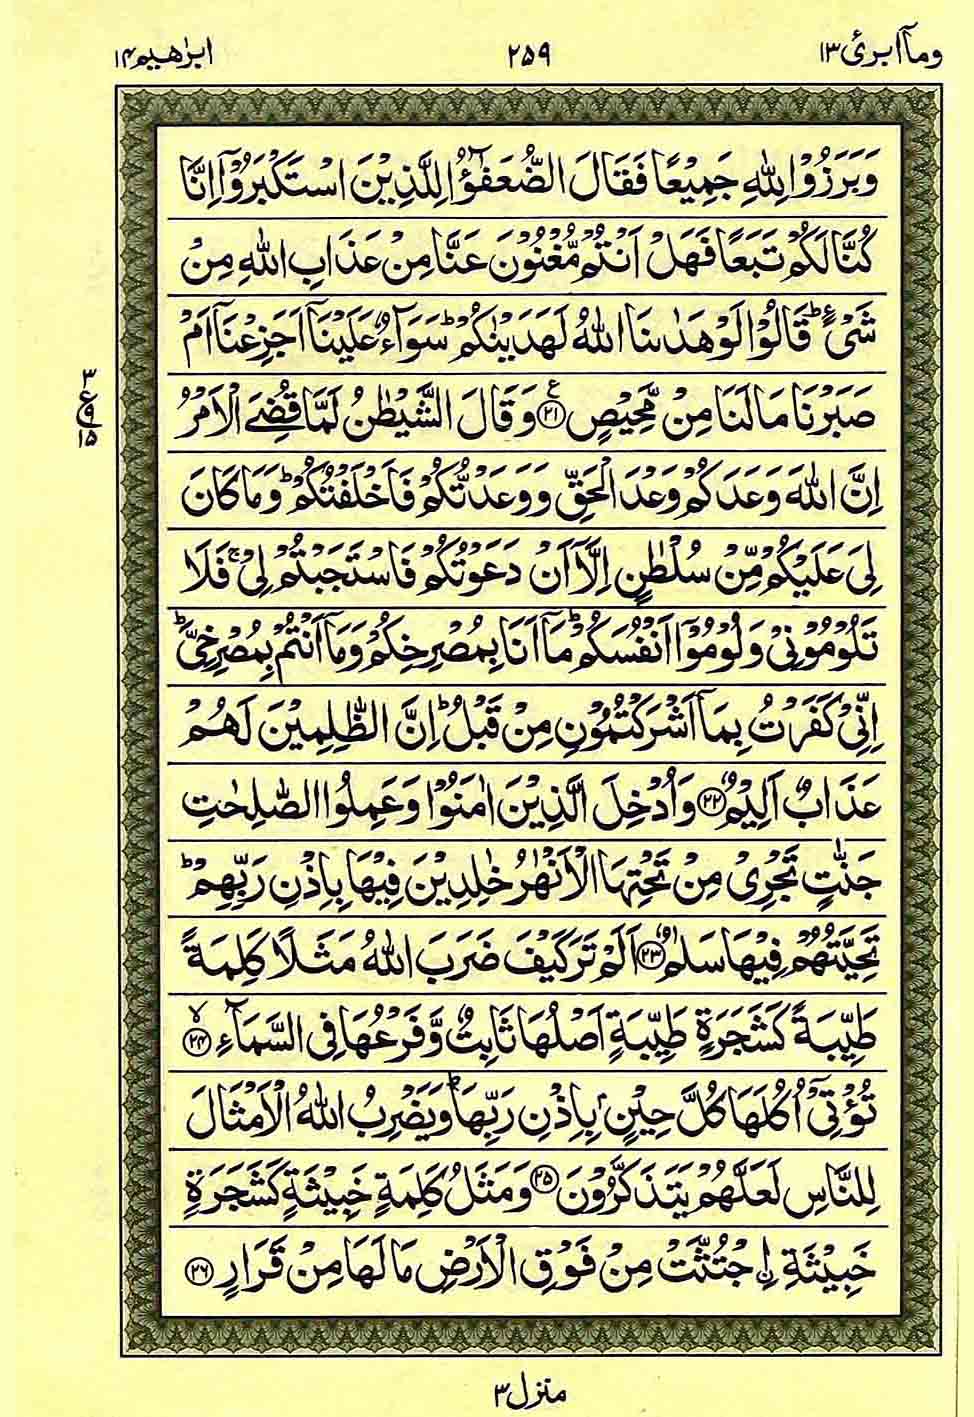 وماۤ ابرئ ١٣
٢٥٩
ابرٰهيم ١٤
وَبَرَزُوْا لِلّٰهِ جَمِيْعًا فَقَالَ الضُّعَفٰٓؤُا لِلَّذِيْنَ اسْتَكْبَرُوْۤا اِنَّا
كُنَّا لَكُمْ تَبَعًا فَهَلْ اَنْتُمْ مُّغْنُوْنَ عَنَّا مِنْ عَذَابِ اللّٰهِ مِنْ
شَىْءٍ ؕ قَالُوْا لَوْ هَدٰىنَا اللّٰهُ لَهَدَيْنٰكُمْ ؕ سَوَآءٌ عَلَيْنَاۤ اَجَزِعْنَاۤ اَمْ
صَبَرْنَا مَا لَنَا مِنْ مَّحِيْصٍ ۧ ‏﴿٢١﴾ وَقَالَ الشَّيْطٰنُ لَمَّا قُضِىَ الْاَمْرُ
٣
ع
٩
١٥
اِنَّ اللّٰهَ وَعَدَكُمْ وَعْدَ الْحَقِّ وَوَعَدْتُّكُمْ فَاَخْلَفْتُكُمْ ؕ وَمَا كَانَ
لِىَ عَلَيْكُمْ مِّنْ سُلْطٰنٍ اِلَّاۤ اَنْ دَعَوْتُكُمْ فَاسْتَجَبْتُمْ لِىْ ۚ فَلَا
تَلُوْمُوْنِىْ وَلُوْمُوْۤا اَنْفُسَكُمْ ؕ مَاۤ اَنَا بِمُصْرِخِكُمْ وَمَاۤ اَنْتُمْ بِمُصْرِخِىَّ ؕ
اِنِّىْ كَفَرْتُ بِمَاۤ اَشْرَكْتُمُوْنِ مِنْ قَبْلُ ؕ اِنَّ الظّٰلِمِيْنَ لَهُمْ
عَذَابٌ اَلِيْمٌ ‏﴿٢٢﴾ وَاُدْخِلَ الَّذِيْنَ اٰمَنُوْا وَعَمِلُوا الصّٰلِحٰتِ
جَنّٰتٍ تَجْرِىْ مِنْ تَحْتِهَا الْاَنْهٰرُ خٰلِدِيْنَ فِيْهَا بِاِذْنِ رَبِّهِمْ ؕ
تَحِيَّتُهُمْ فِيْهَا سَلٰمٌ ‏﴿٢٣﴾ اَلَمْ تَرَ كَيْفَ ضَرَبَ اللّٰهُ مَثَلًا كَلِمَةً
طَيِّبَةً كَشَجَرَةٍ طَيِّبَةٍ اَصْلُهَا ثَابِتٌ وَّفَرْعُهَا فِى السَّمَآءِ ۙ ‏﴿٢٤﴾
تُؤْتِىْۤ اُكُلَهَا كُلَّ حِيْنٍۭ بِاِذْنِ رَبِّهَا ؕ وَيَضْرِبُ اللّٰهُ الْاَمْثَالَ
لِلنَّاسِ لَعَلَّهُمْ يَتَذَكَّرُوْنَ ‏﴿٢٥﴾ وَمَثَلُ كَلِمَةٍ خَبِيْثَةٍ كَشَجَرَةٍ
خَبِيْثَةِ ۨاجْتُثَّتْ مِنْ فَوْقِ الْاَرْضِ مَا لَهَا مِنْ قَرَارٍ ‏﴿٢٦﴾
منزل ٣